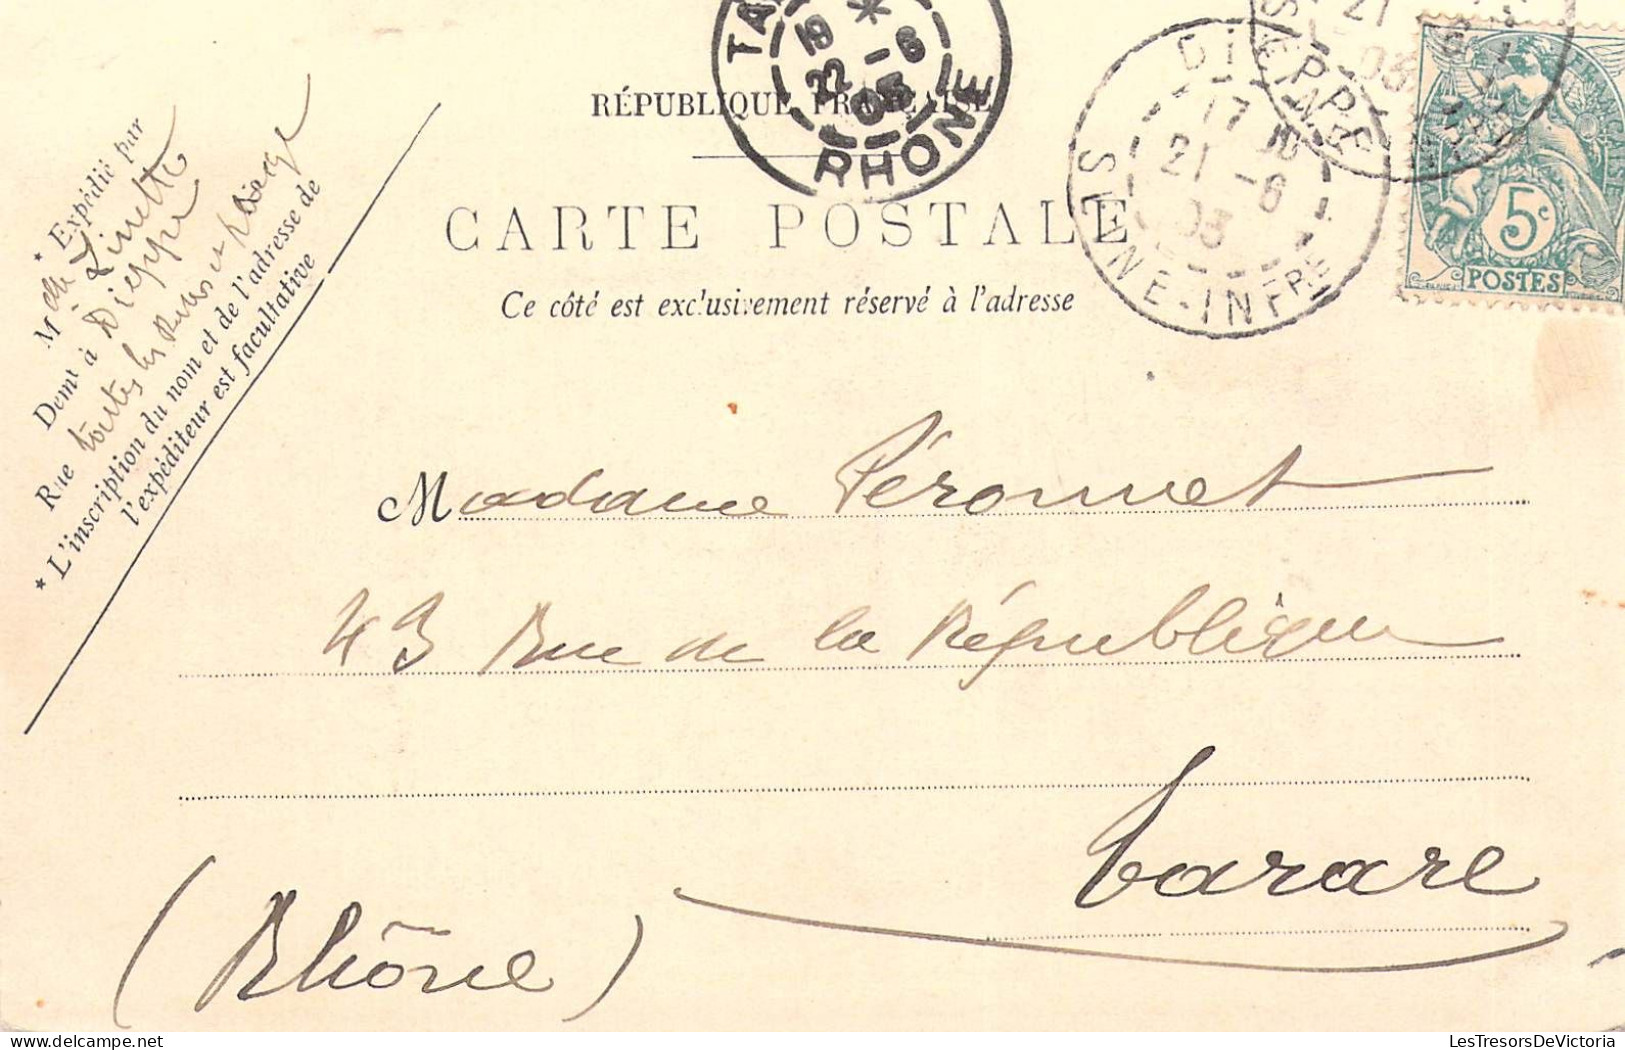 RÉPUBLIQUE FRANÇAISE
CARTE POSTALE
Ce côté est exclusivement réservé à l'adresse
* Expédié par
Mlle Linette
Demt à Dieppe
Rue toutes les Rues et plage
* L'inscription du nom et de l'adresse de
l'expéditeur est facultative
TA
19 *
22 -6
03
RHONE
DIEPPE
17 10
21 -6
03
SEINE-INFRE
DIEPPE
21 -6
03
FRANÇAISE
5c
POSTES
Madame Péronnet
43 Rue de la République
Tarare
(Rhône)
LesTresorsDeVictoria